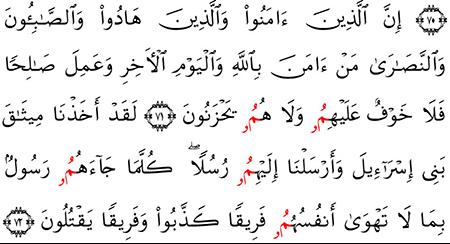 ﴿٧٠﴾ إِنَّ ٱلَّذِينَ ءَامَنُوا۟ وَٱلَّذِينَ هَادُوا۟ وَٱلصَّـٰبِـُٔونَ
وَٱلنَّصَـٰرَىٰ مَنْ ءَامَنَ بِٱللَّهِ وَٱلْيَوْمِ ٱلْأَخِرِ وَعَمِلَ صَـٰلِحًا
فَلَا خَوْفٌ عَلَيْهِمُۥ وَلَا هُمُۥ يَحْزَنُونَ ﴿٧١﴾ لَقَدْ أَخَذْنَا مِيثَـٰقَ
بَنِى إِسْرَٰٓءِيلَ وَأَرْسَلْنَا إِلَيْهِمُۥ رُسُلًا ۖ كُلَّمَا جَآءَهُمُۥ رَسُولٌۢ
بِمَا لَا تَهْوَىٰ أَنفُسُهُمُۥ فَرِيقًا كَذَّبُوا۟ وَفَرِيقًا يَقْتُلُونَ ﴿٧٢﴾